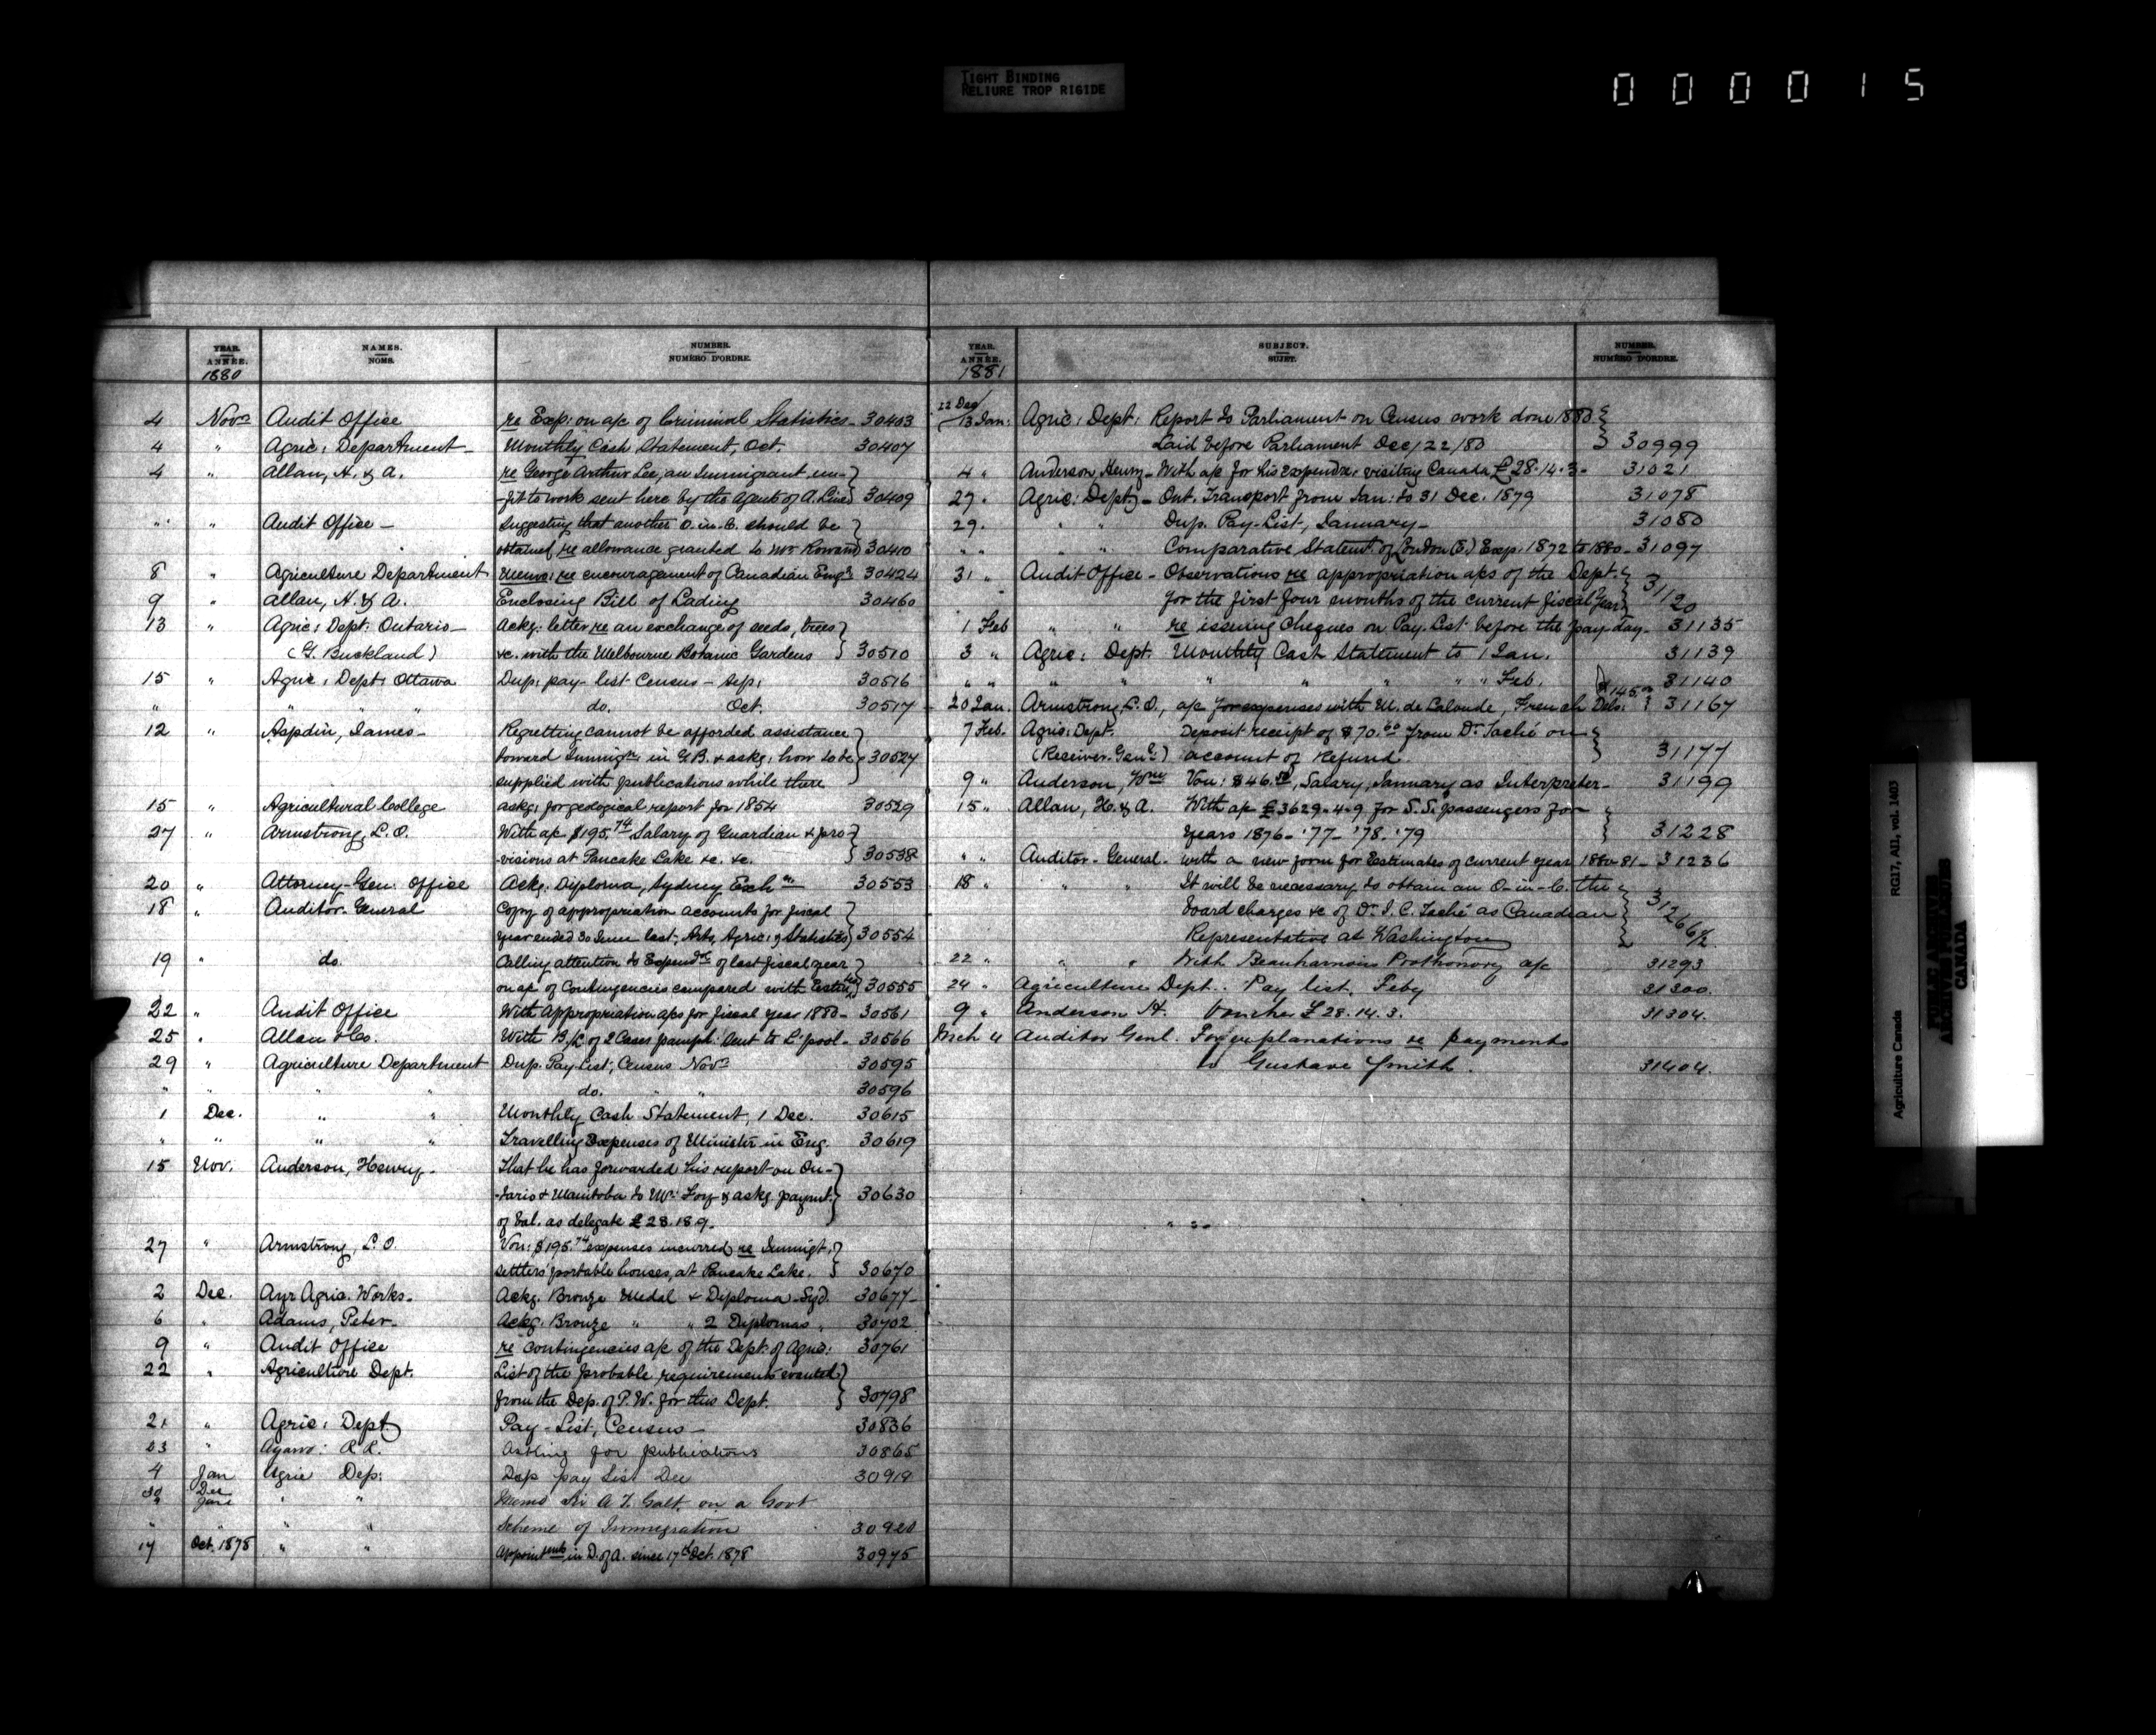 TIGHT BINDING
RELIURE TROP RIGIDE
000015
YEAR. ANNÉE. 1880
NAMES. NOMS.
NUMBER. NUMÉRO D'ORDRE.
4 Novr Audit Office re Exp: on a/c of Criminal Statistics - 30403
4 " Agric: Department - Monthly Cash Statement, Oct. 30407
4 " Allan, H. & A. re George Arthur Lee, an Immigrant un-
-fit to work sent here by the agents of A. Line 30409
" " Audit Office - Suggesting that another O. in. C. should be
obtained, re allowance granted to Mr Rowand 30410
8 " Agriculture Department Memo: re encouragement of Canadian Engrs 30424
9 " Allan, H. & A. Enclosing Bill of Lading 30460
13 " Agric: Dept: Ontario - Ackg: letter re an exchange of seeds, trees
(G. Buckland) &c. with the Melbourne Botanic Gardens 30510
15 " Agric: Dept: Ottawa Dup: pay-list Census - Sep: 30516
" " " " " do. Oct. 30517
12 " Aspdin, James - Regretting cannot be afforded assistance
toward Immign in G.B. & askg: how to be 30527
supplied with publications while there
15 " Agricultural College askg: for geological report for 1854 30529
27 " Armstrong, L. O. With a/c $195.74 Salary of Guardian & pro-
-visions at Pancake Lake &c. &c. 30538
20 " Attorney-Gen: Office Ackg: Diploma, Sydney Exhn 30553
18 " Auditor-General Copy of appropriation accounts for fiscal
year ended 30 June last, Arts, Agric: & Statistics 30554
19 " do. Calling attention to Expendre of last fiscal year
on a/c of Contingencies compared with Estim 30555
22 " Audit Office With Appropriation a/cs for fiscal year 1880 - 30561
25 " Allan & Co. With B/L of 2 Cases pamph: sent to L'pool - 30566
29 " Agriculture Department Dup. Pay List, Census Novr 30595
" " " " do. " " 30596
1 Dec. " " Monthly Cash Statement, 1 Dec. 30615
" " " " Travelling Expenses of Minister in Eng. 30619
15 Nov. Anderson, Henry - That he has forwarded his report on On-
-tario & Manitoba to Mr: Foy & askg. paymt. 30630
of bal. as delegate £28.18.9.
27 " Armstrong, L. O. Vou: $195.74 expenses incurred re Immigt.
settlers' portable houses, at Pancake Lake. 30670
2 Dec. Ayr Agric. Works - Ackg. Bronze Medal & Diploma - Syd. 30677
6 " Adams, Peter - Ackg: Bronze " " 2 Diplomas " 30702
9 " Audit Office re contingencies a/c of the Dept: of Agric: 30761
22 " Agriculture Dept. List of the probable requirements wanted
from the Dep. of P.W. for this Dept. 30798
21 " Agric: Dept Pay-List, Census - 30836
23 " R R. Asking for publications 30865
4 Jan Agric Dep: Dup pay List Dec 30918
30 Dec " " Memo Sir A T. Galt. on a Govt
" Jan " " Scheme of Immigration 30920
17 Oct. 1878 " " Appointmts in D. of A. since 17th Oct. 1878 30975
YEAR. ANNÉE. 1881
SUBJECT. SUJET.
NUMBER. NUMÉRO D'ORDRE.
22 Dec/13 Jan: Agric: Dept: Report to Parliament on Census work done 1880
Laid before Parliament Dec/22/80 30999
4 " Anderson, Henry - With a/c for his expendre: visiting Canada £28.14.3 - 31021
27 " Agric: Dept - Ont. Transport from Jan: to 31 Dec. 1879 31078
29. " " Dup. Pay-List, January - 31080
" " " Comparative Statemt of London (E.) Exp: 1872 to 1880 - 31097
31 " Audit Office - Observations re appropriation a/cs of the Dept.
for the first four months of the current fiscal year 31120
1 Feb " " re issuing Cheques on Pay-List before the pay-day - 31135
3 " Agric: Dept. Monthly Cash Statement to 1 Jan. 31139
" " " " " " " " " Feb. 31140
20 Jan. Armstrong, L. O., a/c for expenses with M. de Lalonde, French Del: $145.00 31167
7 Feb. Agric: Dept. Deposit receipt of $70.00 from Dr. Taché on
(Receiver-Genl:) account of Refund. 31177
9 " Anderson, Wm Vou: $46.50, Salary, January as Interpreter - 31199
15 " Allan, H. & A. With a/c £3629.4.9 for S.S. passengers for
Years 1876 - '77 - '78. '79 31228
" " Auditor-General - with a new form for Estimates of current year 1880-81 - 31236
18 " " " It will be necessary to obtain an O-in-C. the
board charges &c of Dr. J. C. Taché as Canadian 31266½
Representative at Washington
22 " " " With Beauharnois Prothonory a/c 31293
24 " Agriculture Dept.. Pay list. Feby 31300.
9 " Anderson H. Voucher £28.14.3. 31304.
Mch 4 Auditor Genl. For explanations re payments
to Gustave Smith. 31404.
Agriculture Canada RG17, AII, vol. 1403
PUBLIC ARCHIVES
ARCHIVES PUBLIQUES
CANADA